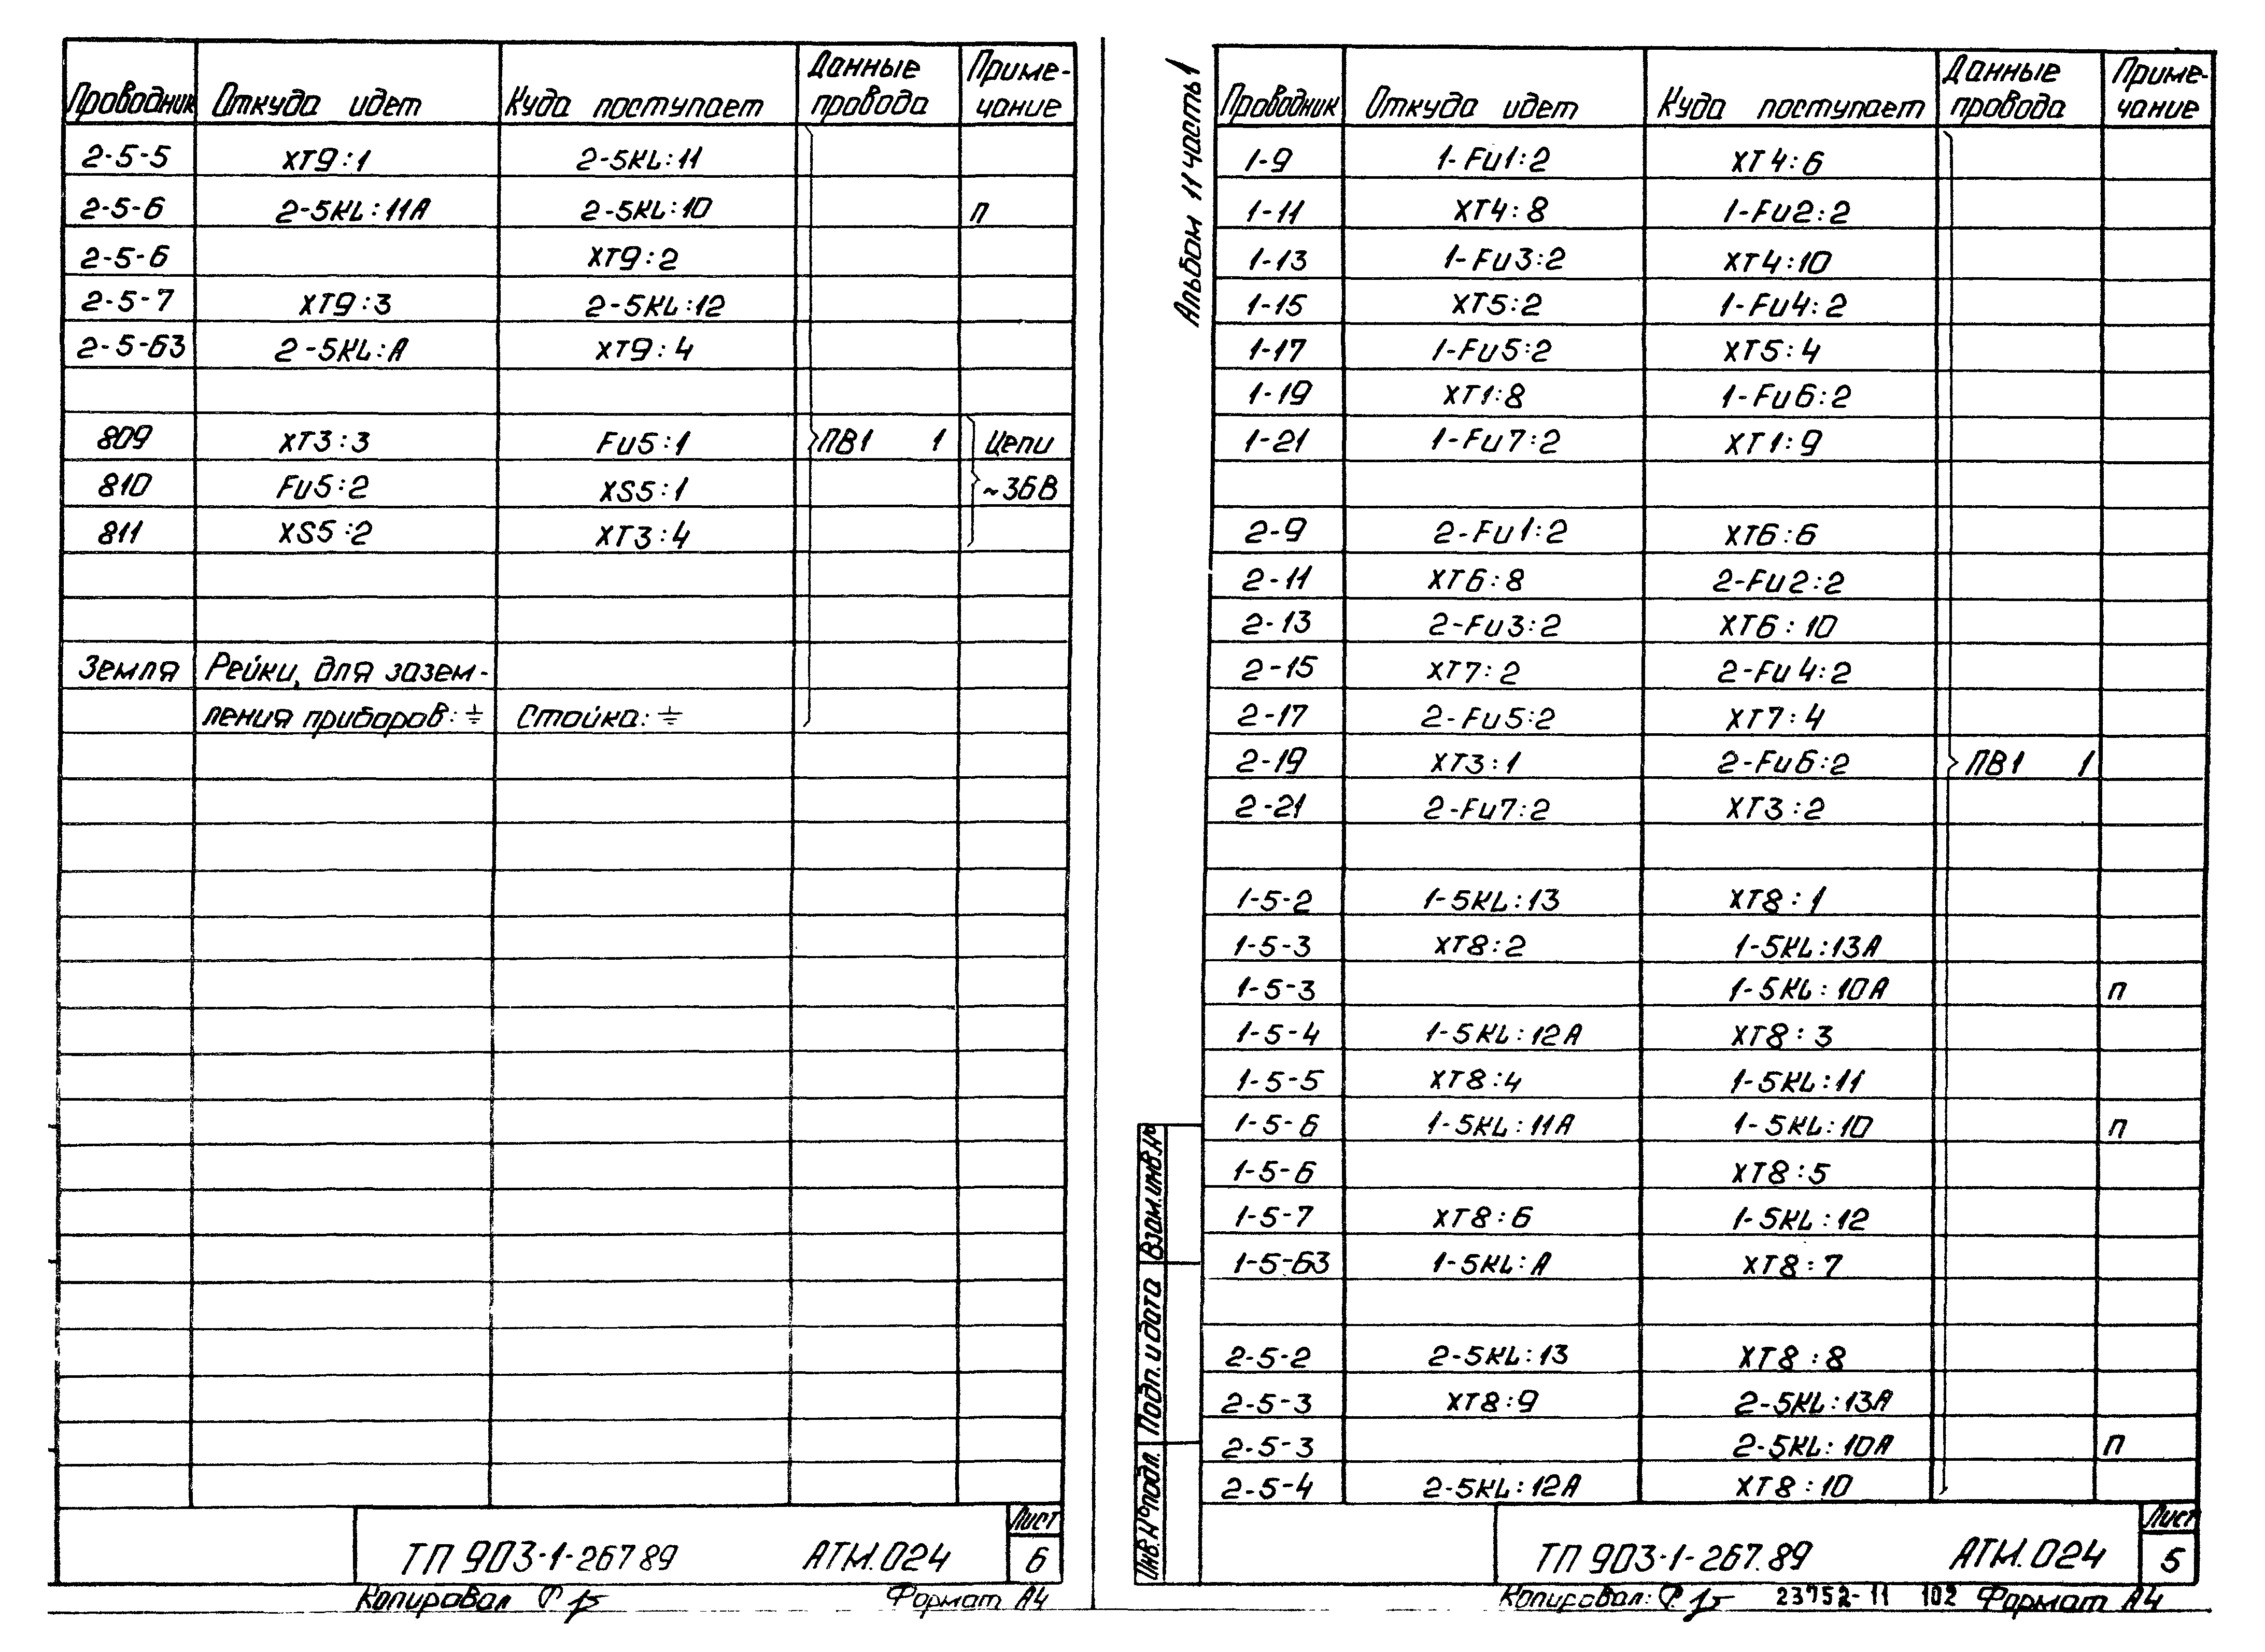 Проводник Откуда идет Куда поступает Данные провода Приме- чание
2-5-5 XT9:1 2-5KL:11
2-5-6 2-5KL:11A 2-5KL:10 п
2-5-6 XT9:2
2-5-7 XT9:3 2-5KL:12
2-5-Б3 2-5KL:A XT9:4
809 XT3:3 Fu5:1 ПВ1 1 Цепи
810 Fu5:2 XS5:1 ~36В
811 XS5:2 XT3:4
Земля Рейки, для зазем-
ления приборов: ⏚ Стойка: ⏚
ТП 903-1-267 89 АТМ.024 Лист 6
Копировал Формат А4
Альбом 11 часть 1
Проводник Откуда идет Куда поступает Данные провода Приме- чание
1-9 1-Fu1:2 XT4:6
1-11 XT4:8 1-Fu2:2
1-13 1-Fu3:2 XT4:10
1-15 XT5:2 1-Fu4:2
1-17 1-Fu5:2 XT5:4
1-19 XT1:8 1-Fu6:2
1-21 1-Fu7:2 XT1:9
2-9 2-Fu1:2 XT6:6
2-11 XT6:8 2-Fu2:2
2-13 2-Fu3:2 XT6:10
2-15 XT7:2 2-Fu4:2
2-17 2-Fu5:2 XT7:4
2-19 XT3:1 2-Fu6:2 ПВ1 1
2-21 2-Fu7:2 XT3:2
1-5-2 1-5KL:13 XT8:1
1-5-3 XT8:2 1-5KL:13A
1-5-3 1-5KL:10A п
1-5-4 1-5KL:12A XT8:3
1-5-5 XT8:4 1-5KL:11
1-5-6 1-5KL:11A 1-5KL:10 п
1-5-6 XT8:5
1-5-7 XT8:6 1-5KL:12
1-5-Б3 1-5KL:A XT8:7
2-5-2 2-5KL:13 XT8:8
2-5-3 XT8:9 2-5KL:13A
2-5-3 2-5KL:10A п
2-5-4 2-5KL:12A XT8:10
Взам.инв.№
Подп. и дата
Инв.№ подл.
ТП 903-1-267.89 АТМ.024 Лист 5
Копировал: 23752-11 102 Формат А4